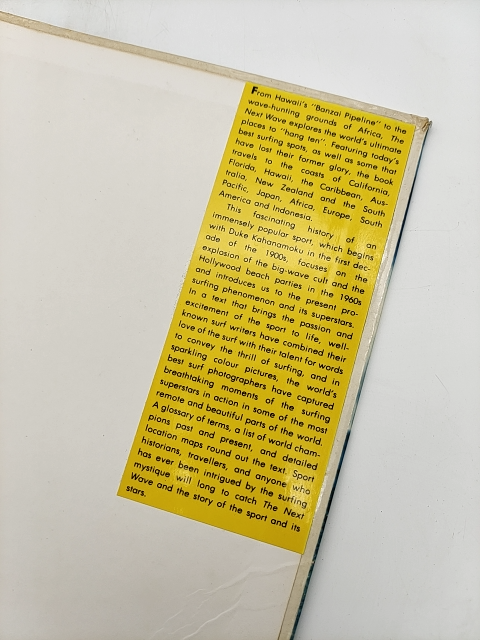 From Hawaii's "Banzai Pipeline" to the
wave-hunting grounds of Africa, The
Next Wave explores the world's ultimate
places to "hang ten". Featuring today's
best surfing spots, as well as some that
have lost their former glory, the book
travels to the coasts of California,
Florida, Hawaii, the Caribbean, Aus-
tralia, New Zealand and the South
Pacific, Japan, Africa, Europe, South
America and Indonesia.
This fascinating history of an
immensely popular sport, which begins
with Duke Kahanamoku in the first dec-
ade of the 1900s, focuses on the
explosion of the big-wave cult and the
Hollywood beach parties in the 1960s
and introduces us to the present pro-
surfing phenomenon and its superstars.
In a text that brings the passion and
excitement of the sport to life, well-
known surf writers have combined their
love of the surf with their talent for words
to convey the thrill of surfing, and in
sparkling colour pictures, the world's
best surf photographers have captured
breathtaking moments of the surfing
superstars in action in some of the most
remote and beautiful parts of the world.
A glossary of terms, a list of world cham-
pions past and present, and detailed
location maps round out the text. Sport
historians, travellers, and anyone who
has ever been intrigued by the surfing
mystique will long to catch The Next
Wave and the story of the sport and its
stars.